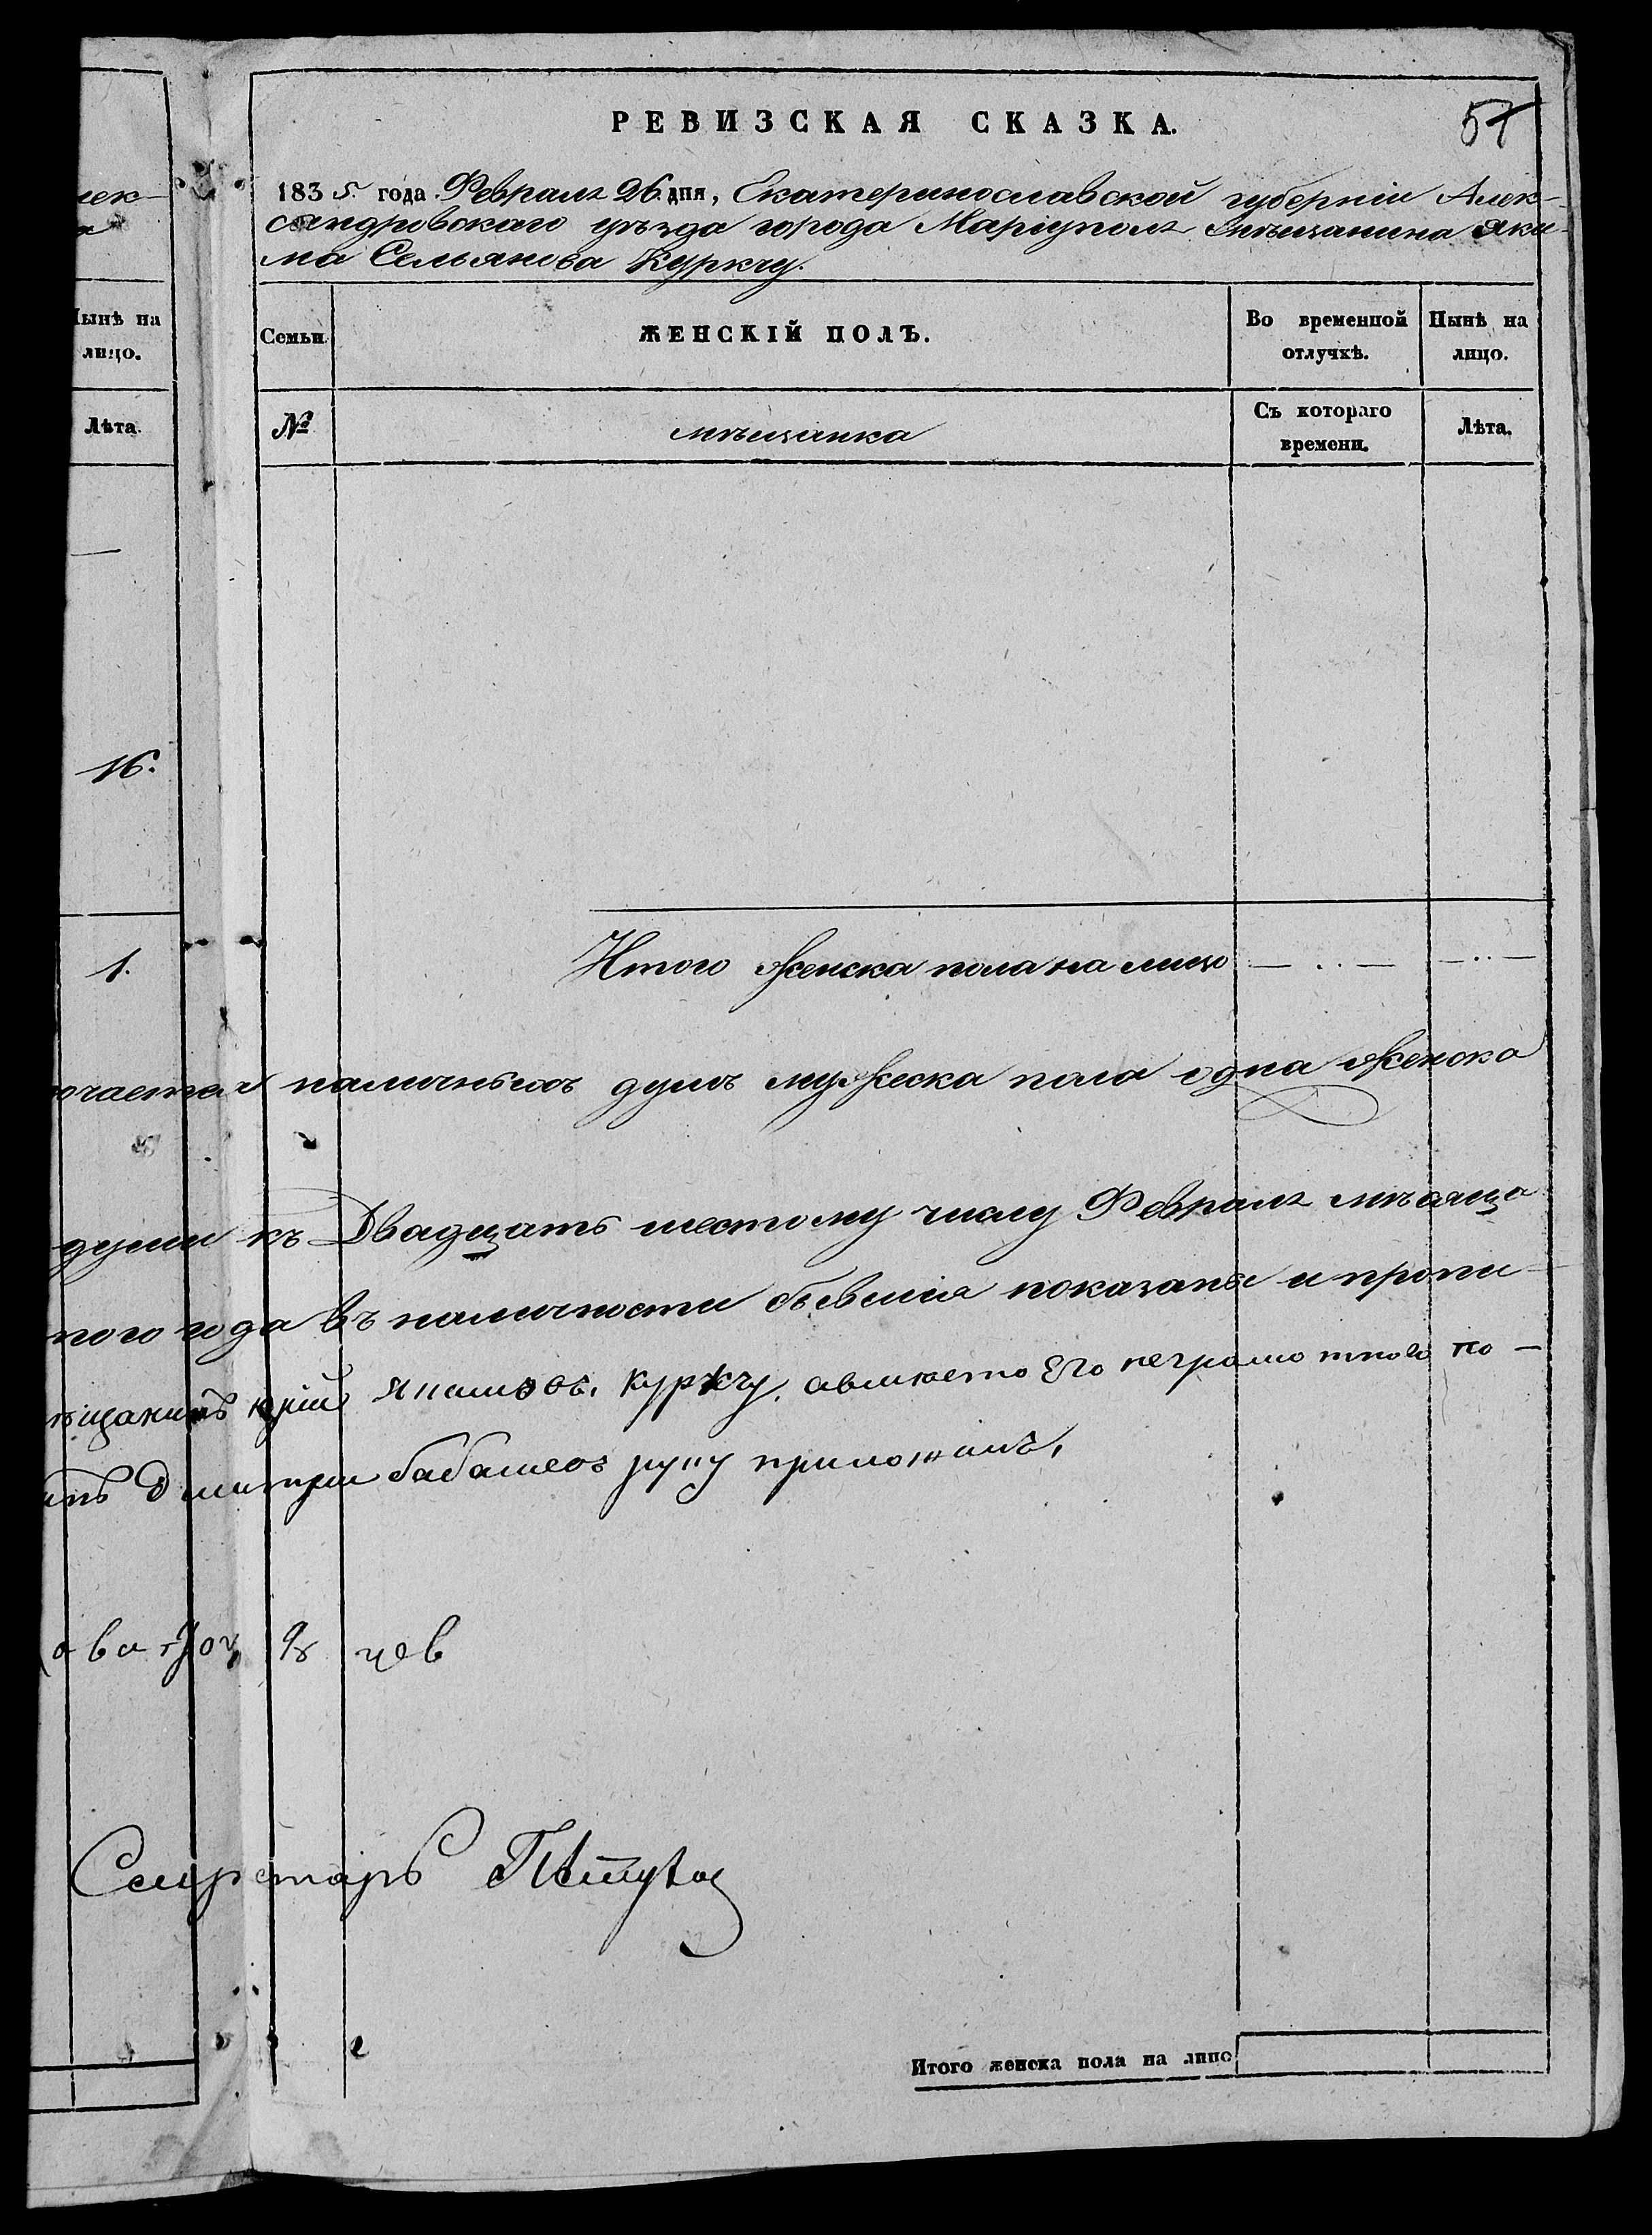 РЕВИЗСКАЯ СКАЗКА.
57
1835 года Февраля 26 дня, Екатеринославской губерніи Алек-
сандровскаго уѣзда города Маріуполя мѣщанина Яки-
ма Сельянова Куркчу.
лек-
Нынѣ на
лицо.
Лѣта.
Семьи
ЖЕНСКІЙ ПОЛЪ.
Во временной
отлучкѣ.
Нынѣ на
лицо.
№
мѣщанка
Съ котораго
времени.
Лѣта.
16.
1.
Итого женска пола на лицо
ючается наличныхъ душъ мужеска пола одна женска
души къ Двадцать шестому числу Февраля мѣсяца
ного года въ наличности бывшія показаны и пропи-
ѣщанинъ Юрій Куркчу, а вместо Его неграмотного по-
инъ Дмитрий бабашевъ руку приложилъ,
Секретарь
Итого женска пола на лицо